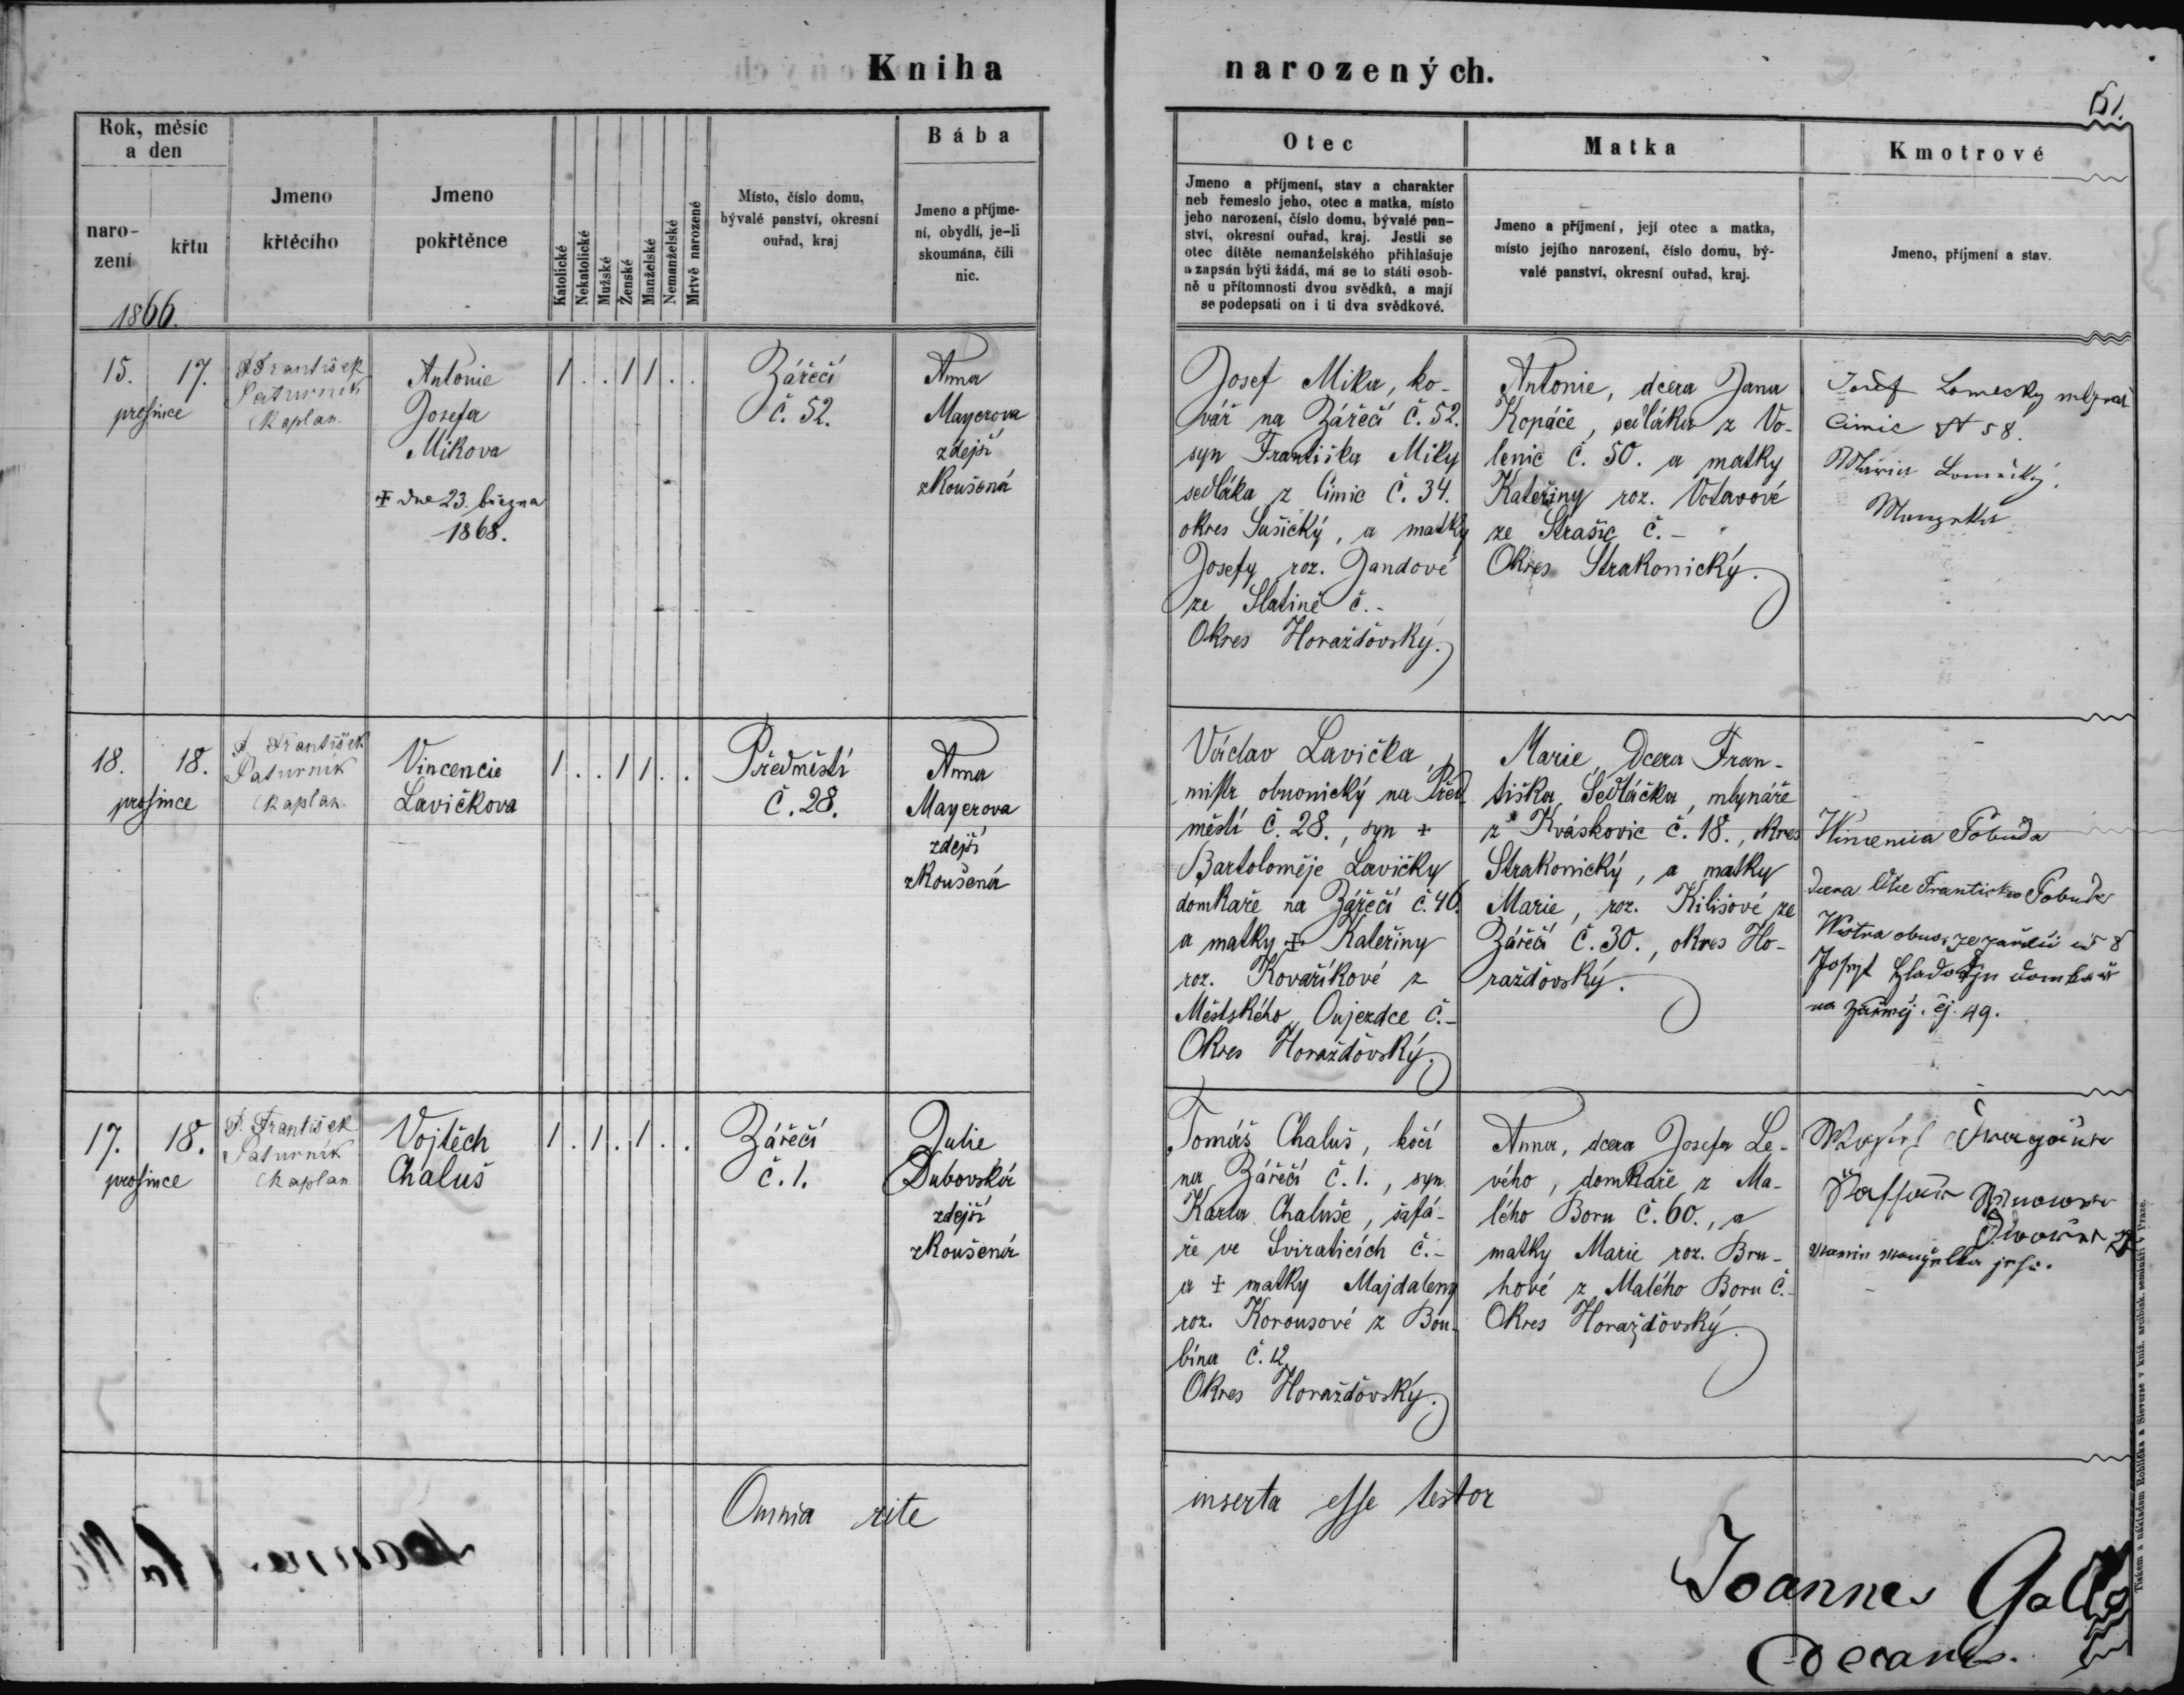 Kniha narozených.
51.
Rok, měsíc
a den
naro-
zení
křtu
1866.
Jmeno
křtěcího
Jmeno
pokřtěnce
Katolické
Nekatolické
Mužské
Ženské
Manželské
Nemanželské
Mrtvě narozené
Místo, číslo domu,
bývalé panství, okresní
ouřad, kraj
Bába
Jmeno a příjme-
ní, obydlí, je-li
skoumána, čili
nic.
Otec
Jmeno a příjmení, stav a charakter
neb řemeslo jeho, otec a matka, místo
jeho narození, číslo domu, bývalé pan-
ství, okresní ouřad, kraj. Jestli se
otec dítěte nemanželského přihlašuje
a zapsán býti žádá, má se to státi osob-
ně u přítomnosti dvou svědků, a mají
se podepsati on i ti dva svědkové.
Matka
Jmeno a příjmení, její otec a matka,
místo jejího narození, číslo domu, bý-
valé panství, okresní ouřad, kraj.
Kmotrové
Jmeno, příjmení a stav.
15. 17.
prosince
P. František
Paturník
kaplan.
Antonie
Josefa
Mikova
+ dne 23. března
1868.
1 . . 1 1 . .
Zářečí
č. 52.
Anna
Mayerova
zdejší
zkoušená
Josef Mika, ko-
vář na Zářečí č. 52.
syn Františka Miky
sedláka z Čimic č. 34.
okres Sušický, a matky
Josefy roz. Jandové
ze Slatině č. -
Okres Horažďovský.
Antonie, dcera Jana
Kopáče, sedláka z Vo-
lenic č. 50. a matky
Kateřiny roz. Votavové
ze Strašic č. -
Okres Strakonický.
Josef Lomecky mlynař
Cimic N 58.
Maria Lomečký
Manzelka
18. 18.
prosince
P. František
Paturník
kaplan.
Vincencie
Lavičkova
1 . . 1 1 . .
Předměstí
č. 28.
Anna
Mayerova
zdejší
zkoušená
Václav Lavička,
mistr obuvnický na Před
městí č. 28., syn +
Bartoloměje Lavičky
domkaře na Zářečí č. 46.
a matky + Kateřiny
roz. Kovaříkové z
Městského Oujezdce č. -
Okres Horažďovský.
Marie, dcera Fran-
tiška Sedláčka, mlynáře
z Kváskovic č. 18., okres
Strakonický, a matky
Marie, roz. Kilisové ze
Zářečí č. 30., okres Ho-
ražďovský.
Františka Pobuda
Josef domkař
na čj. 49.
17. 18.
prosince
P. František
Paturník
kaplan
Vojtěch
Chaluš
1 . 1 . 1 . .
Zářečí
č. 1.
Julie
Dubovská
zdejší
zkoušená
Tomáš Chaluš, kočí
na Zářečí č. 1., syn
Karla Chaluše, šafá-
ře ve Sviraticích č. -
a + matky Majdaleny
roz. Korousové z Bou-
bína č. 12
Okres Horažďovský.
Anna, dcera Josefa Le-
vého, domkaře z Ma-
lého Boru č. 60., a
matky Marie roz. Bru-
hové z Malého Boru č. -
Okres Horažďovský.
manželka jeho.
Omnia rite inserta esse testor
Joannes Galle
Decanus.
Tiskem a nákladem Rohlíčka a Sieverse v kníž. arcibisk. semináři v Praze.